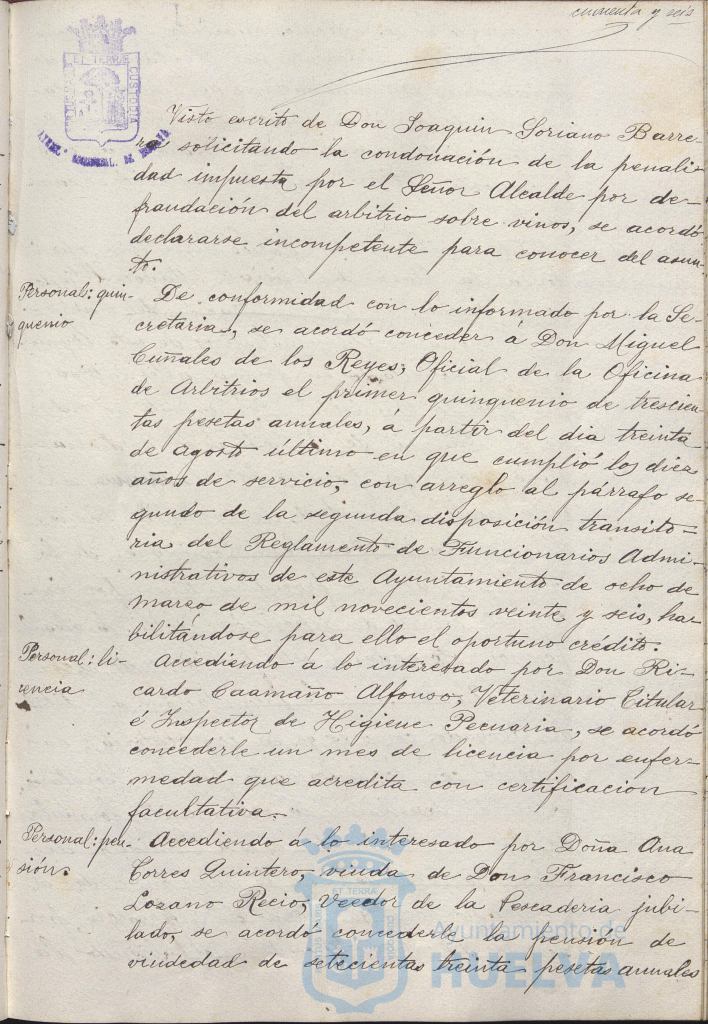 cincuenta y seis
ET TERRÆ
CUSTODIA
Visto escrito de Don Joaquin Soriano Barre-
ra solicitando la condonación de la penali-
dad impuesta por el Señor Alcalde por de-
fraudación del arbitrio sobre vinos, se acordó
declararse incompetente para conocer del asun-
to.
Personal: quin-
quenio
De conformidad con lo informado por la Se-
cretaria, se acordó conceder á Don Miguel
Cuñales de los Reyes, Oficial de la Oficina
de Arbitrios el primer quinquenio de trescien-
tas pesetas annales, á partir del dia treinta
de agosto último en que cumplió los diez
años de servicio, con arreglo al párrafo se-
gundo de la segunda disposición transito-
ria del Reglamento de Funcionarios Admi-
nistrativos de este Ayuntamiento de ocho de
marzo de mil novecientos veinte y seis, ha-
bilitándose para ello el oportuno crédito.
Personal: li-
cencia
Accediendo á lo interesado por Don Ri-
cardo Caamaño Alfonso, Veterinario Titular
é Inspector de Higiene Pecuaria, se acordó
concederle un mes de licencia por enfer-
medad que acredita con certificacion
facultativa.
Personal: pen-
sión.
Accediendo á lo interesado por Doña Ana
Torres Quintero, viuda de Don Francisco
Lozano Recio, Veedor de la Pescaderia jubi-
lado, se acordó concederle la pensión de
viudedad de setecientas treinta pesetas annales
Ayuntamiento de
HUELVA